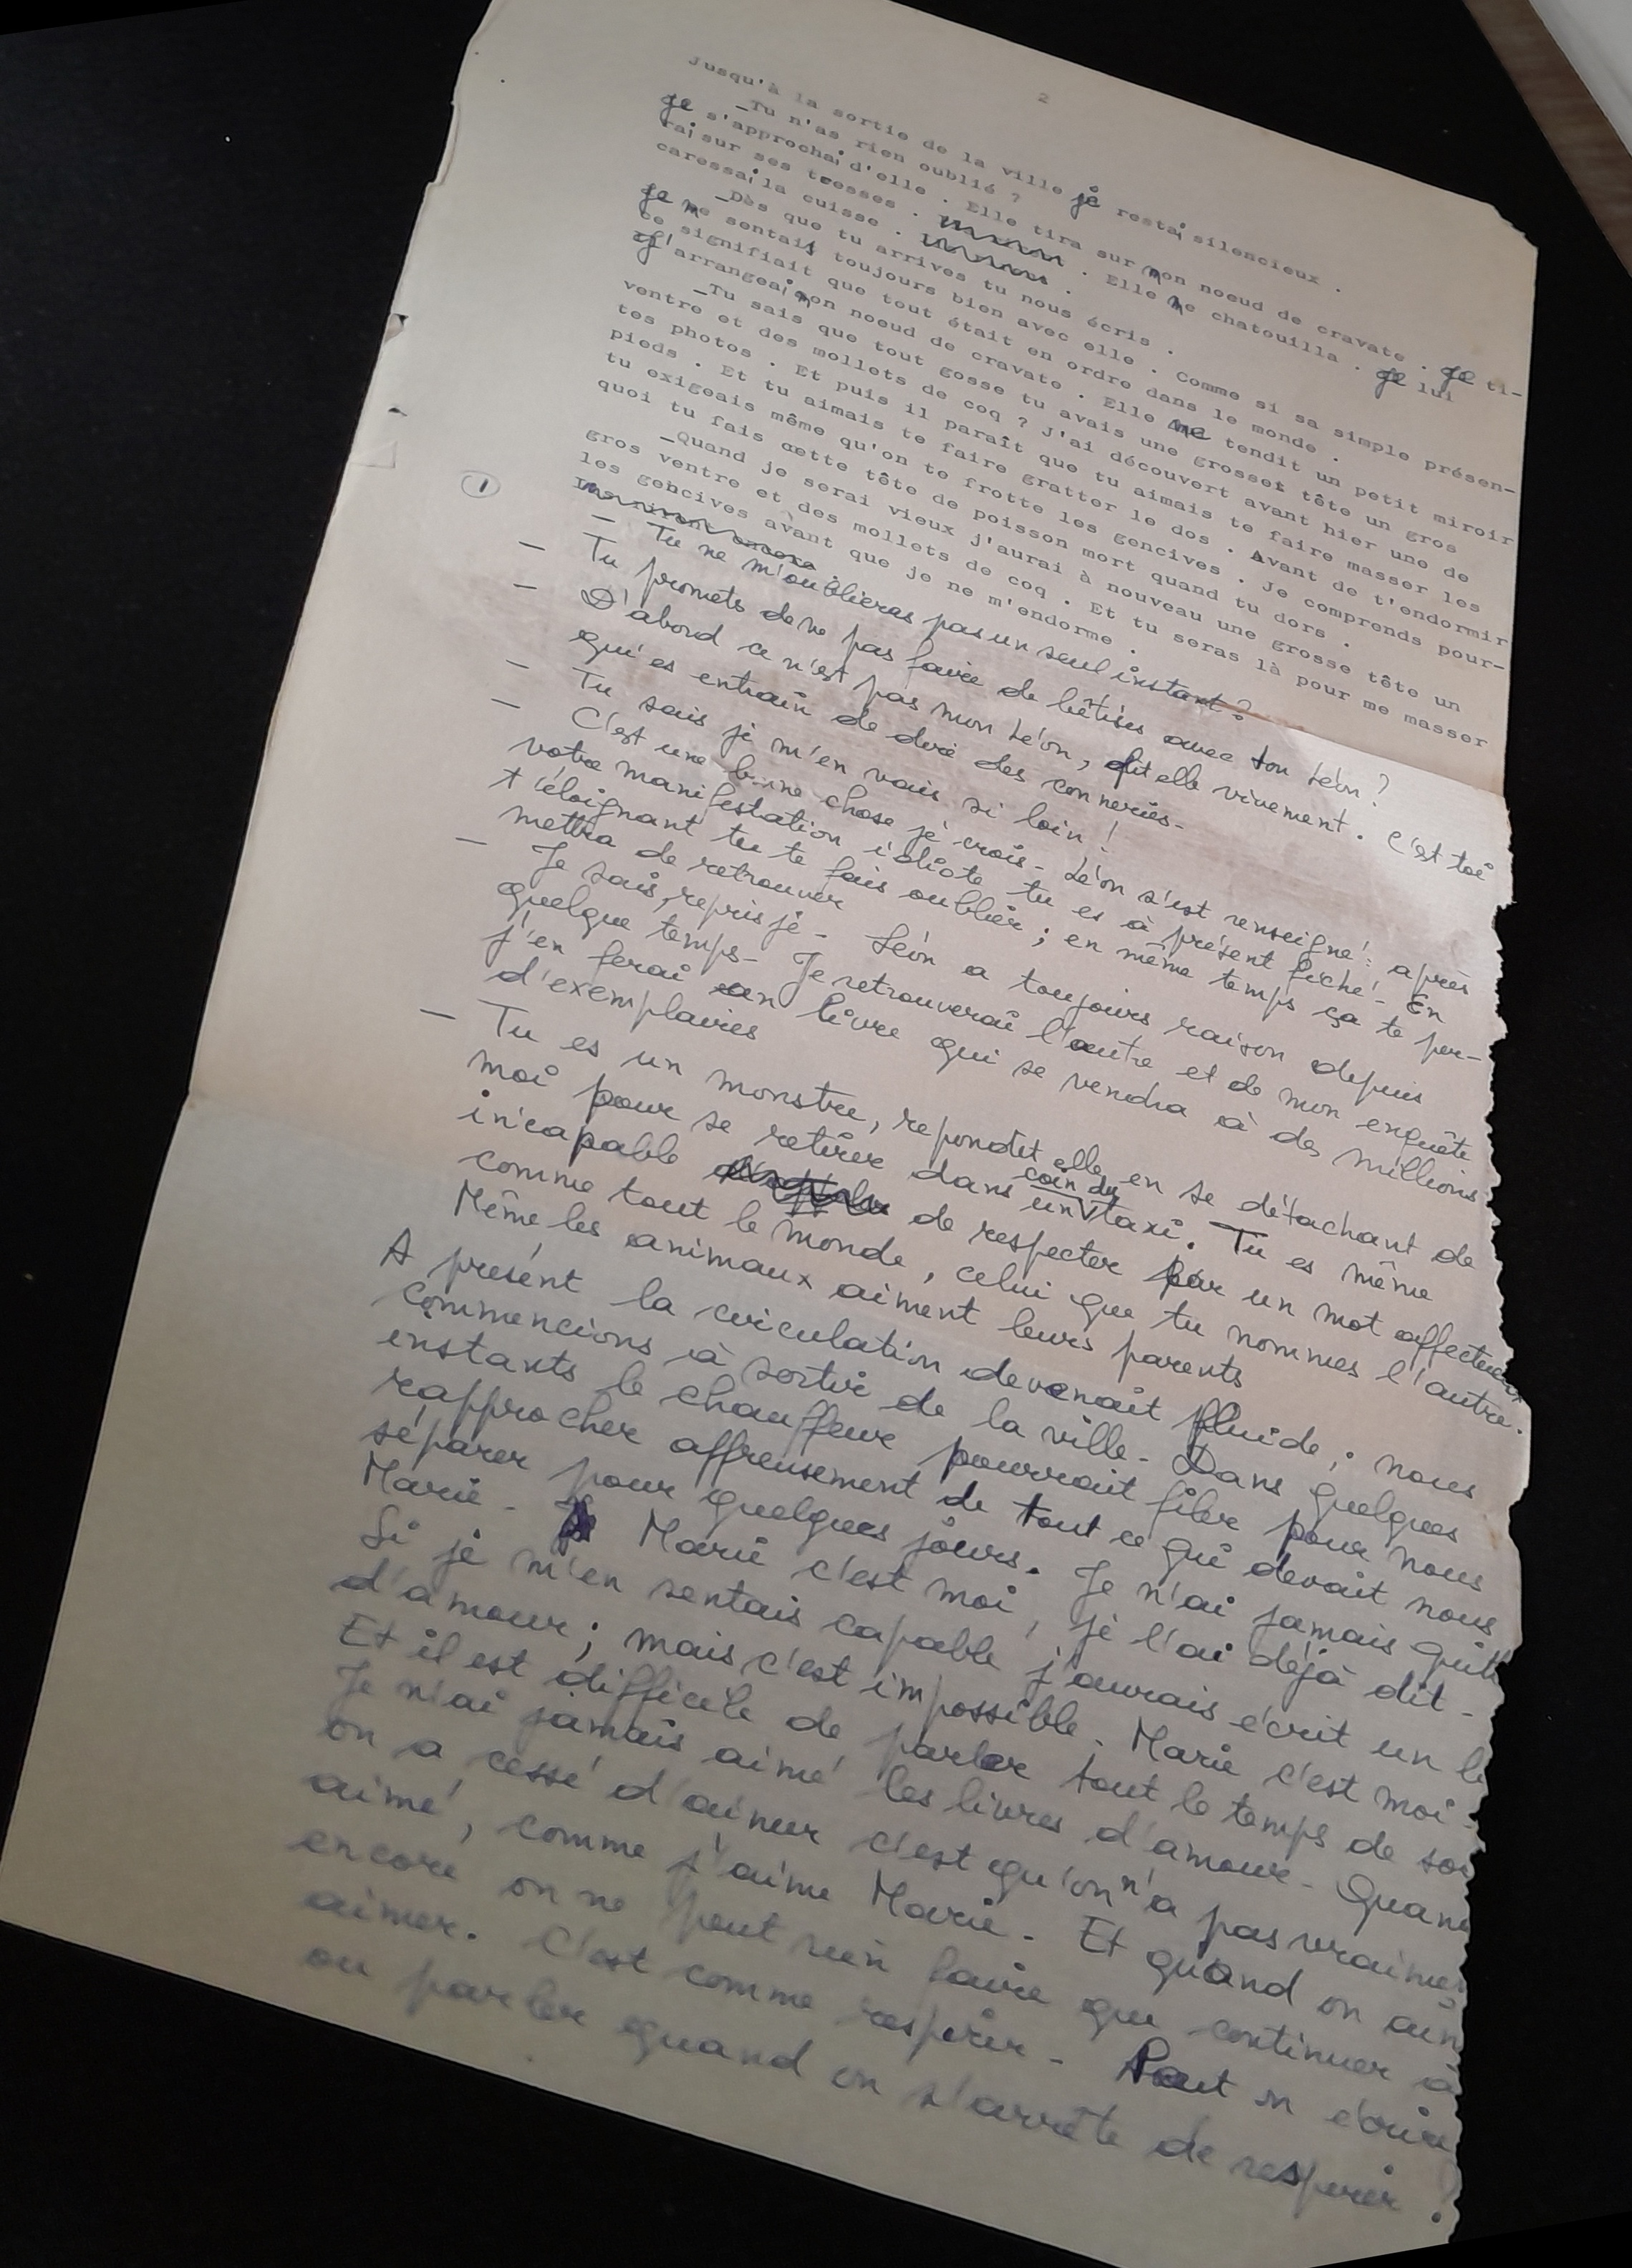 2
Jusqu'à la sortie de la ville je restai silencieux .
_Tu n'as rien oublié ?
Je s'approchai d'elle . Elle tira sur mon noeud de cravate . Je ti-
rai sur ses tresses . Elle me chatouilla . Je lui
caressai la cuisse .
_Dès que tu arrives tu nous écris .
Je me sentais toujours bien avec elle . Comme si sa simple présen-
ce signifiait que tout était en ordre dans le monde .
J'arrangeai mon noeud de cravate . Elle me tendit un petit miroir
_Tu sais que tout gosse tu avais une grosse tête un gros
ventre et des mollets de coq ? J'ai découvert avant hier une de
tes photos . Et puis il paraît que tu aimais te faire masser les
pieds . Et tu aimais te faire gratter le dos . Avant de t'endormir
tu exigeais même qu'on te frotte les gencives . Je comprends pour-
quoi tu fais cette tête de poisson mort quand tu dors .
_Quand je serai vieux j'aurai à nouveau une grosse tête un
gros ventre et des mollets de coq . Et tu seras là pour me masser
les gencives avant que je ne m'endorme .
1
_ Tu ne m'oublieras pas un seul instant ?
_ Tu promets de ne pas faire de bêtises avec ton Léon ?
_ D'abord ce n'est pas mon Léon, dit elle vivement. C'est toi
qui es entrain de dire des conneries-
_ Tu sais je m'en vais si loin !
_ C'est une bonne chose je crois- Léon s'est renseigné : après
votre manifestation idiote tu es à présent fiché- En
t'éloignant tu te fais oublier ; en même temps ça te per-
mettra de retrouver
_ Je sais, repris je - Léon a toujours raison depuis
quelque temps- Je retrouverai l'autre et de mon enquête
j'en ferai un livre qui se vendra à des millions
d'exemplaires
_ Tu es un monstre, repondit elle en se détachant de
moi pour se retirer dans un coin du taxi. Tu es même
incapable de respecter par un mot affectueux
comme tout le monde, celui que tu nommes l'autre.
Même les animaux aiment leurs parents
A présent la circulation devenait fluide ; nous
commencions à sortir de la ville- Dans quelques
instants le chauffeur pourrait filer pour nous
rapprocher affreusement de tout ce qui devait nous
séparer pour quelques jours. Je n'ai jamais quitt
Marie - Marie c'est moi, je l'ai déjà dit -
Si je m'en sentais capable j'aurais écrit un li
d'amour ; mais c'est impossible - Marie c'est moi -
Et il est difficile de parler tout le temps de soi
Je n'ai jamais aimé les livres d'amour - Quand
on a cessé d'aimer c'est qu'on n'a pas vraimen
aimé, comme j'aime Marie. Et quand on aim
encore on ne peut rien faire que continuer à
aimer. C'est comme respirer - Peut on écrire
ou parler quand on s'arrête de respirer ?